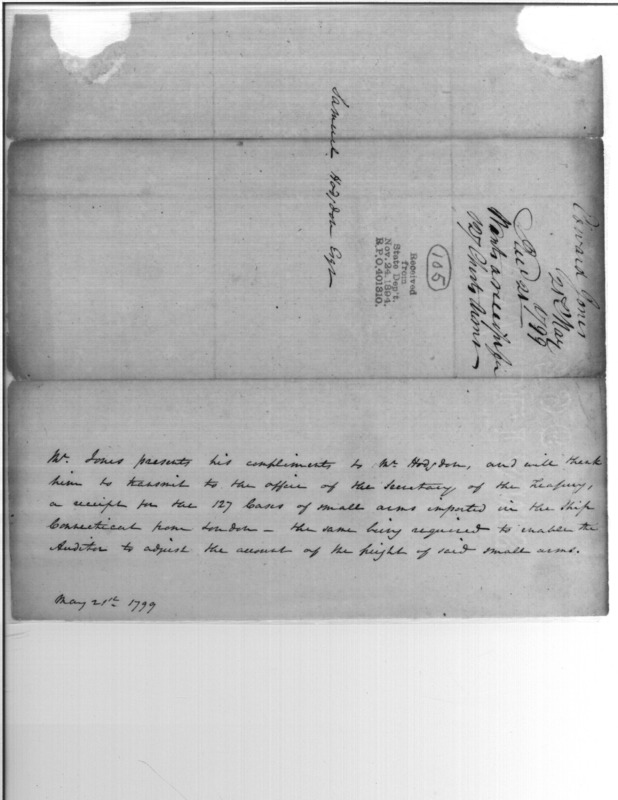 Samuel Hodgdon Esqr
Received
from
State Dep't.
Nov. 24, 1894.
R.P.O. 401310.
105
Edward Jones
21st May
1799
Recd 21st
Wants a receipt for
127 Chests Arms
Mr. Jones presents his compliments to Mr. Hodgdon, and will thank
him to transmit to the office of the Secretary of the Treasury,
a receipt for the 127 Cases of small arms imported in the Ship
Connecticut from London — the same being required to enable the
Auditor to adjust the account of the freight of said small arms.
May 21st 1799